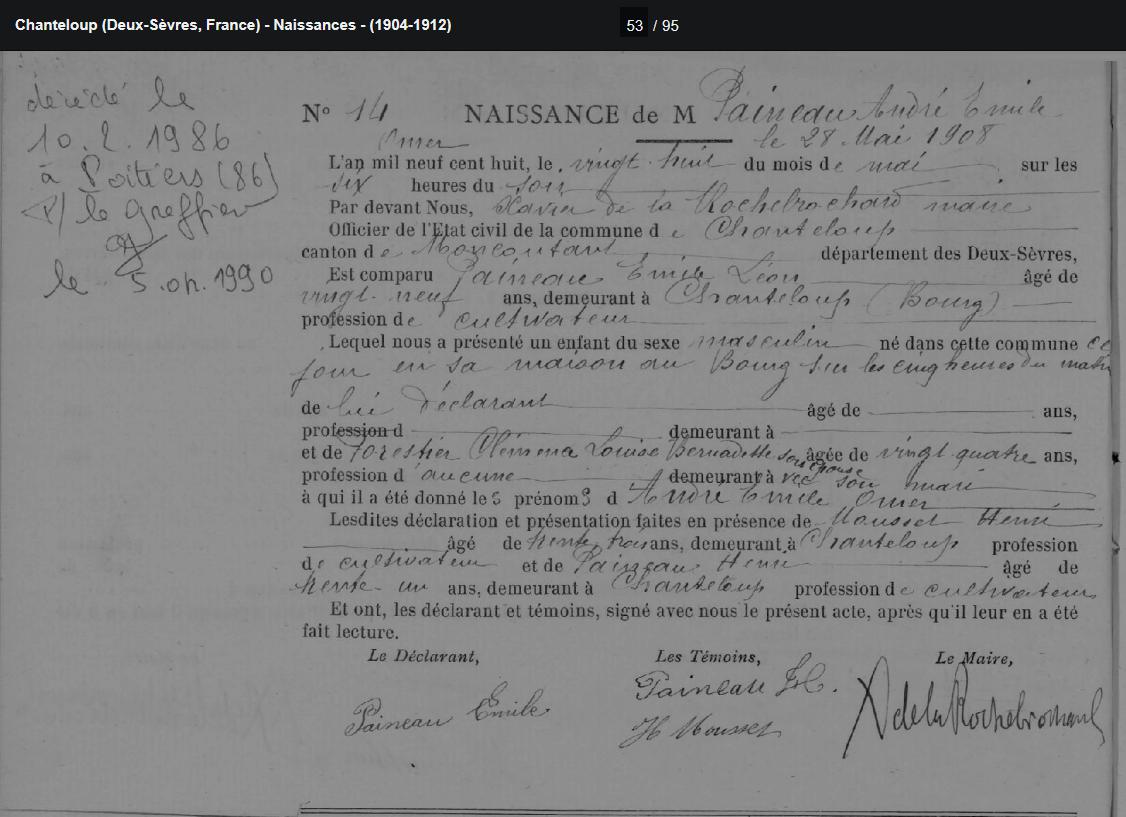 Chanteloup (Deux-Sèvres, France) - Naissances - (1904-1912)
53 / 95
décédé le
10.2.1986
à Poitiers (86)
P/ le greffier
le 5.04.1990
N° 14 NAISSANCE de M Paineau André Emile
Omer le 28 Mai 1908
L'an mil neuf cent huit, le vingt huit du mois de mai sur les
six heures du soir
Par devant Nous, Xavier de la Rochebrochard maire
Officier de l'Etat civil de la commune de Chanteloup
canton de Moncoutant département des Deux-Sèvres,
Est comparu Paineau Emile Léon âgé de
vingt-neuf ans, demeurant à Chanteloup (Bourg)
profession de cultivateur
Lequel nous a présenté un enfant du sexe masculin né dans cette commune ce
jour en sa maison au Bourg sur les cinq heures du matin
de lui déclarant âgé de ans,
profession d demeurant à
et de Forestier Clémence Louise Bernadette son épouse âgée de vingt quatre ans,
profession d'aucune demeurant avec son mari
à qui il a été donné les prénoms d'André Emile Omer
Lesdites déclaration et présentation faites en présence de Mousset Henri
âgé de trente trois ans, demeurant à Chanteloup profession
de cultivateur et de Paineau Henri âgé de
trente un ans, demeurant à Chanteloup profession de cultivateur
Et ont, les déclarant et témoins, signé avec nous le présent acte, après qu'il leur en a été
fait lecture.
Le Déclarant, Les Témoins, Le Maire,
Paineau Emile Paineau H. X de la Rochebrochard
H Mousset